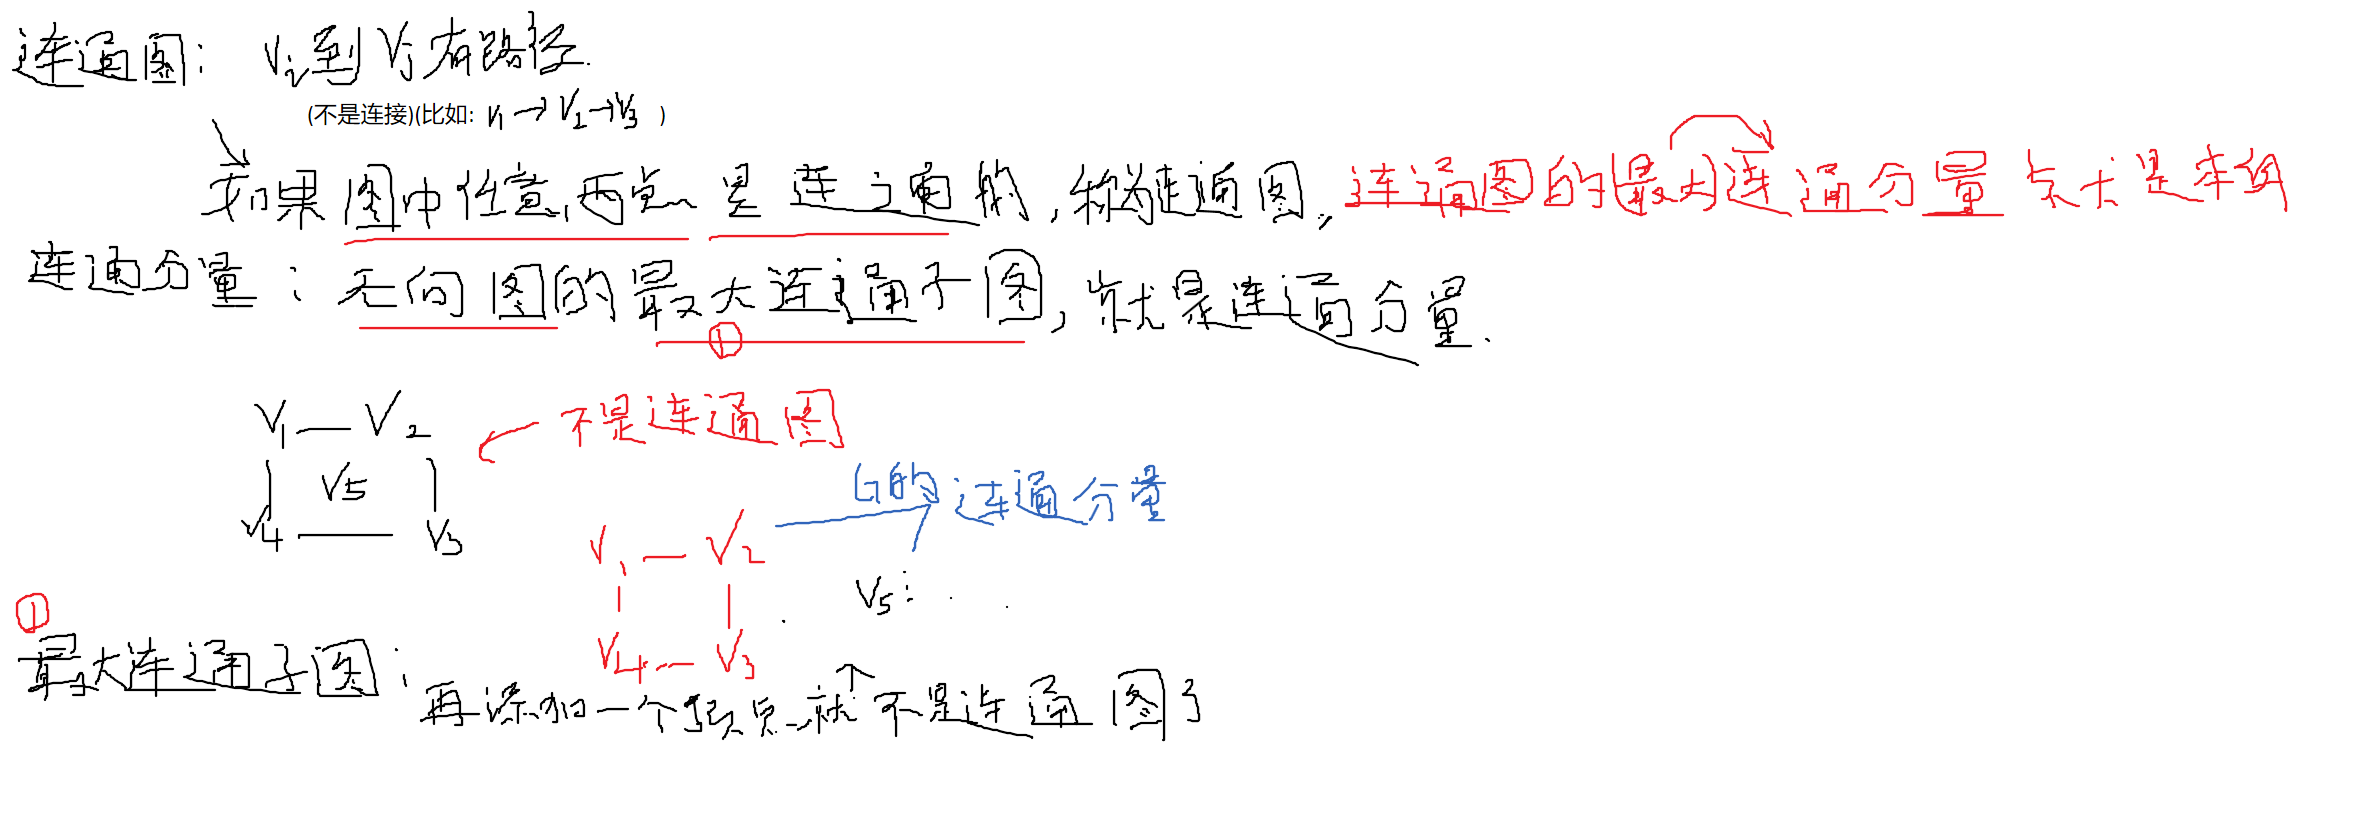 连通图: Vi到Vj有路径.
(不是连接)(比如: V1→V2→V3 )
如果图中任意两点是连通的,称为连通图, 连通图的最大连通分量就是本身
连通分量: 无向图的最大连通子图,就是连通分量.
①
V1 — V2
不是连通图
V5
G的连通分量
V4 — V3
V1 — V2
V5:
①
V4 — V3
最大连通子图:
再添加一个顶点就不是连通图了